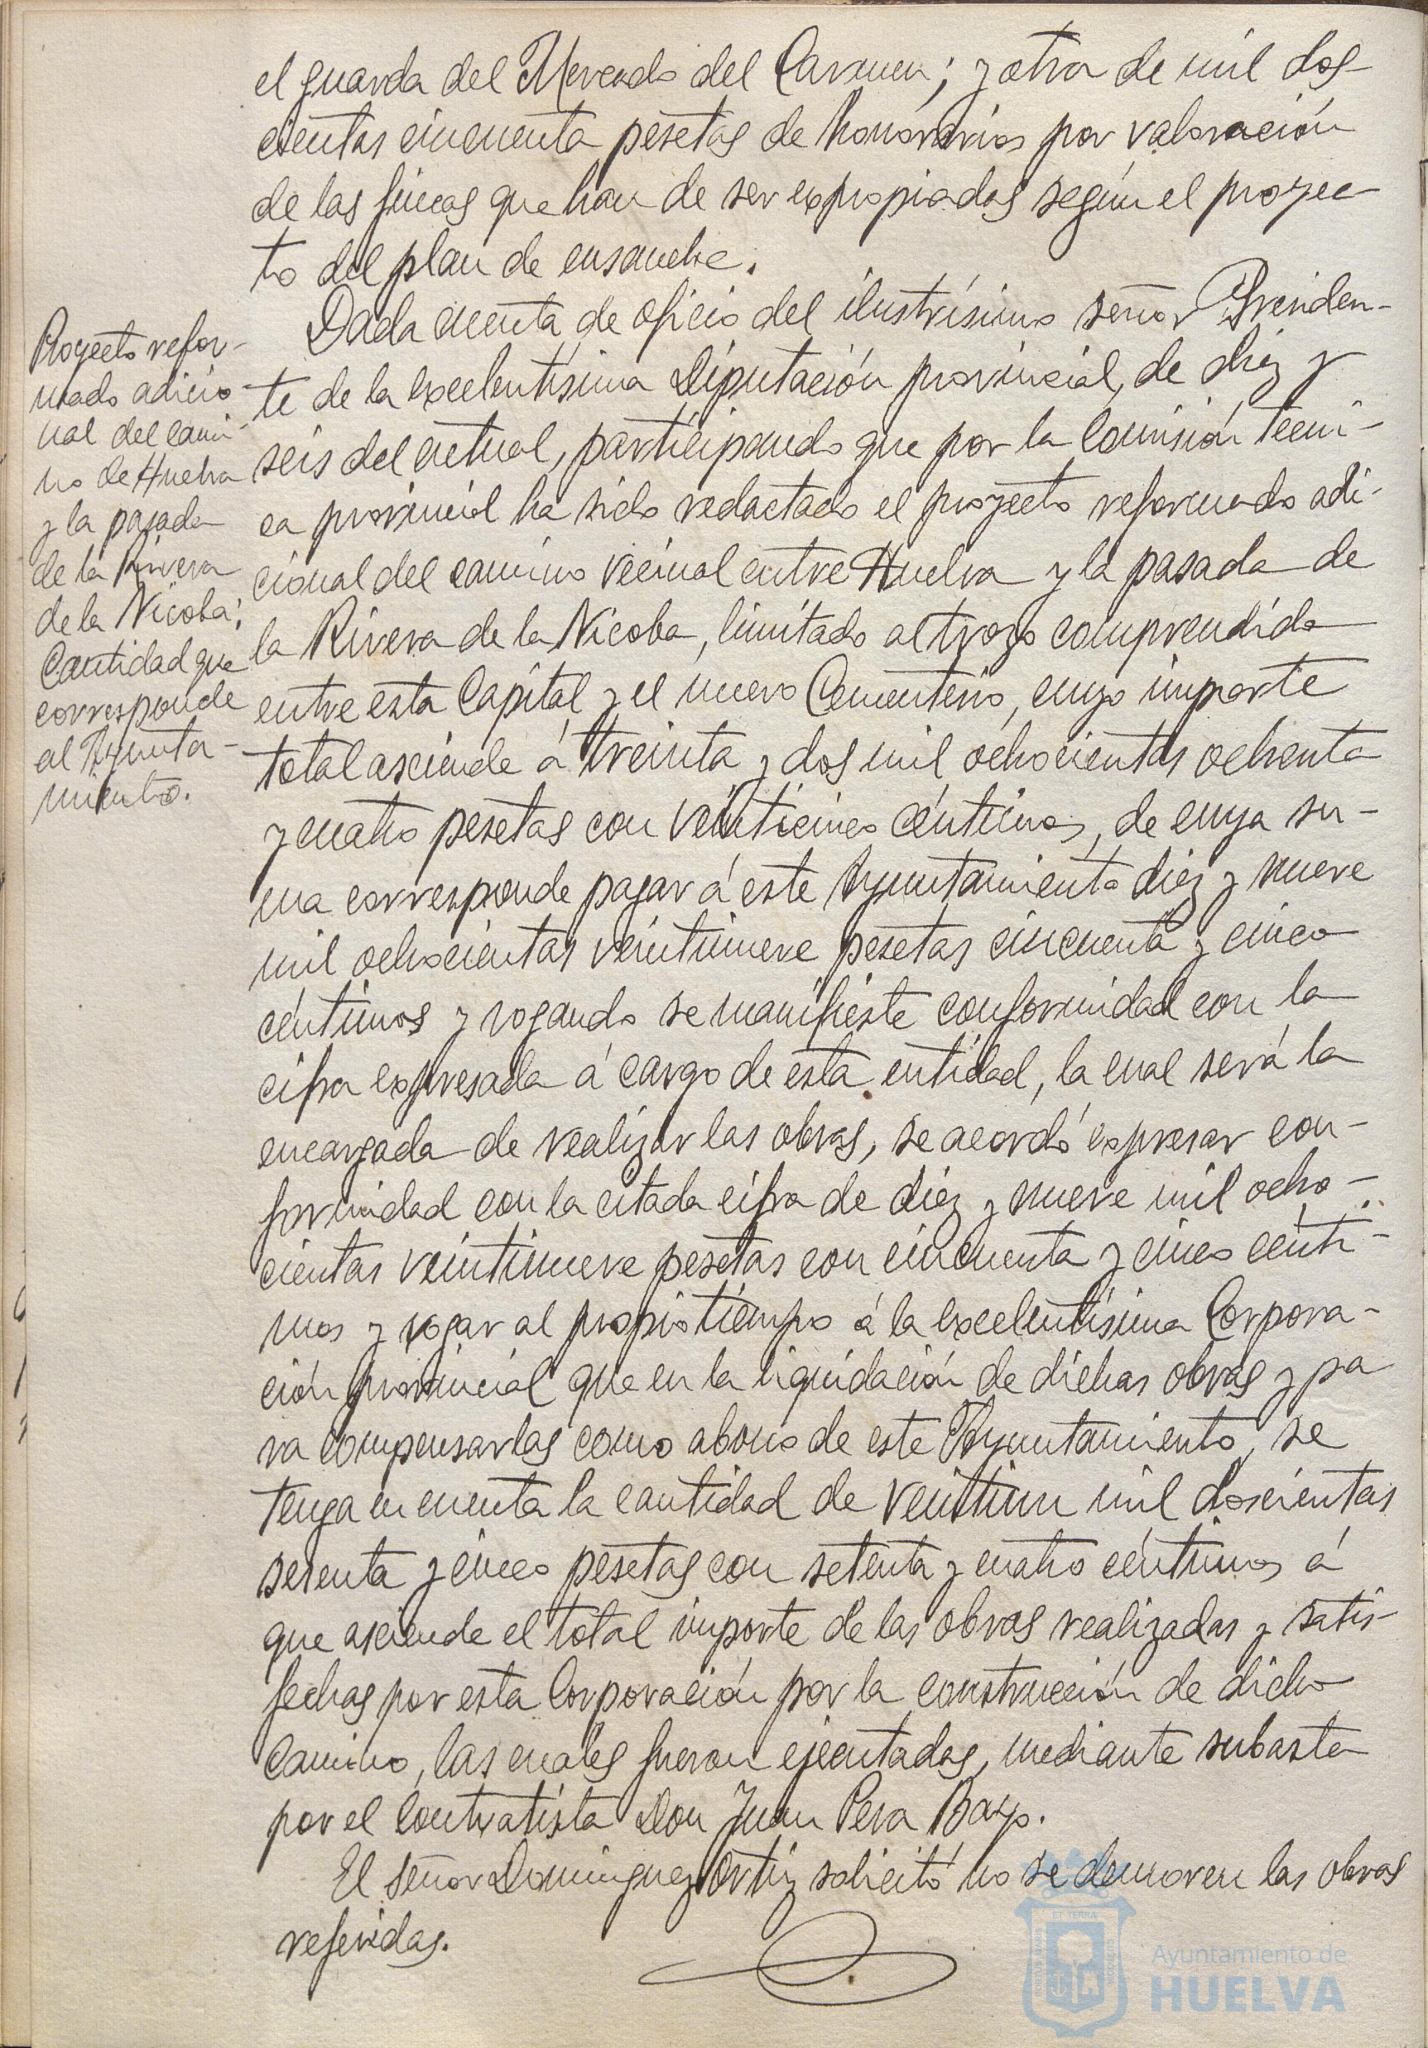 el guarda del Mercado del Carmen; y otra de mil dos-
cientas cincuenta pesetas de honorarios por valoración
de las fincas que han de ser expropiadas según el proyec-
to del plan de ensanche.
Proyecto refor-
mado adicio-
nal del cami-
no de Huelva
y la pasada
de la Rivera
de la Nicoba;
Cantidad que
corresponde
al Ayunta-
miento.
Dada cuenta de oficio del ilustrísimo señor Presiden-
te de la excelentísima Diputación provincial, de diez y
seis del actual, participando que por la Comisión técni-
ca provincial ha sido redactado el proyecto reformado adi-
cional del camino vecinal entre Huelva y la pasada de
la Rivera de la Nicoba, limitado al trozo comprendido
entre esta Capital y el nuevo Cementerio, cuyo importe
total asciende á treinta y dos mil ochocientas ochenta
y cuatro pesetas con veinticinco céntimos, de cuya su-
ma corresponde pagar á este Ayuntamiento diez y nueve
mil ochocientas veintinueve pesetas cincuenta y cinco
céntimos y rogando se manifieste conformidad con la
cifra expresada á cargo de esta entidad, la cual será la
encargada de realizar las obras, se acordó expresar con-
formidad con la citada cifra de diez y nueve mil ocho-
cientas veintinueve pesetas con cincuenta y cinco cénti-
mos y rogar al propio tiempo á la excelentísima Corpora-
ción provincial que en la liquidación de dichas obras y pa
ra compensarlas como abono de este Ayuntamiento, se
tenga en cuenta la cantidad de veintiun mil doscientas
sesenta y cinco pesetas con setenta y cuatro céntimos á
que asciende el total importe de las obras realizadas y satis-
fechas por esta Corporación por la construcción de dicho
Camino, las cuales fueron ejecutadas, mediante subasta
por el Contratista Don Juan Pera Bayo.
El señor Dominguez Ortiz solicitó no se demoren las obras
referidas.
ET TERRA
Ayuntamiento de
HUELVA